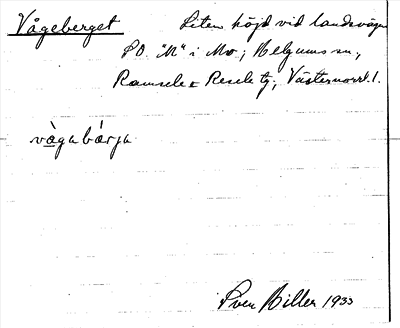 Vågeberget
Liten höjd vid landsvägen
S.O. "M" i Mo; Helgums sn,
Ramsele o. Resele tg; Västernorrl. l.
vàgabárja
Sven Biller 1933